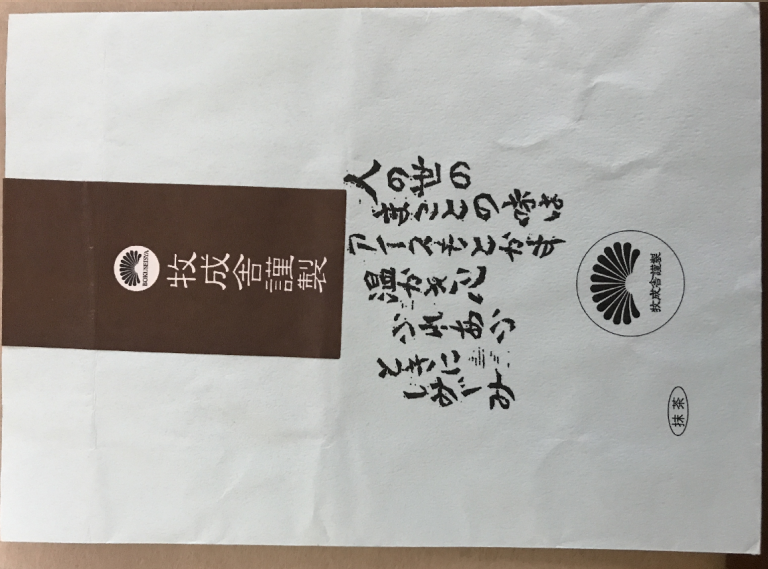 BOKUSEISYA
牧成舎謹製
人の世の
まことの味は
アイスもとかす
温かき心
ふれあふ
ときに
しみじみ
牧成舎謹製
抹茶